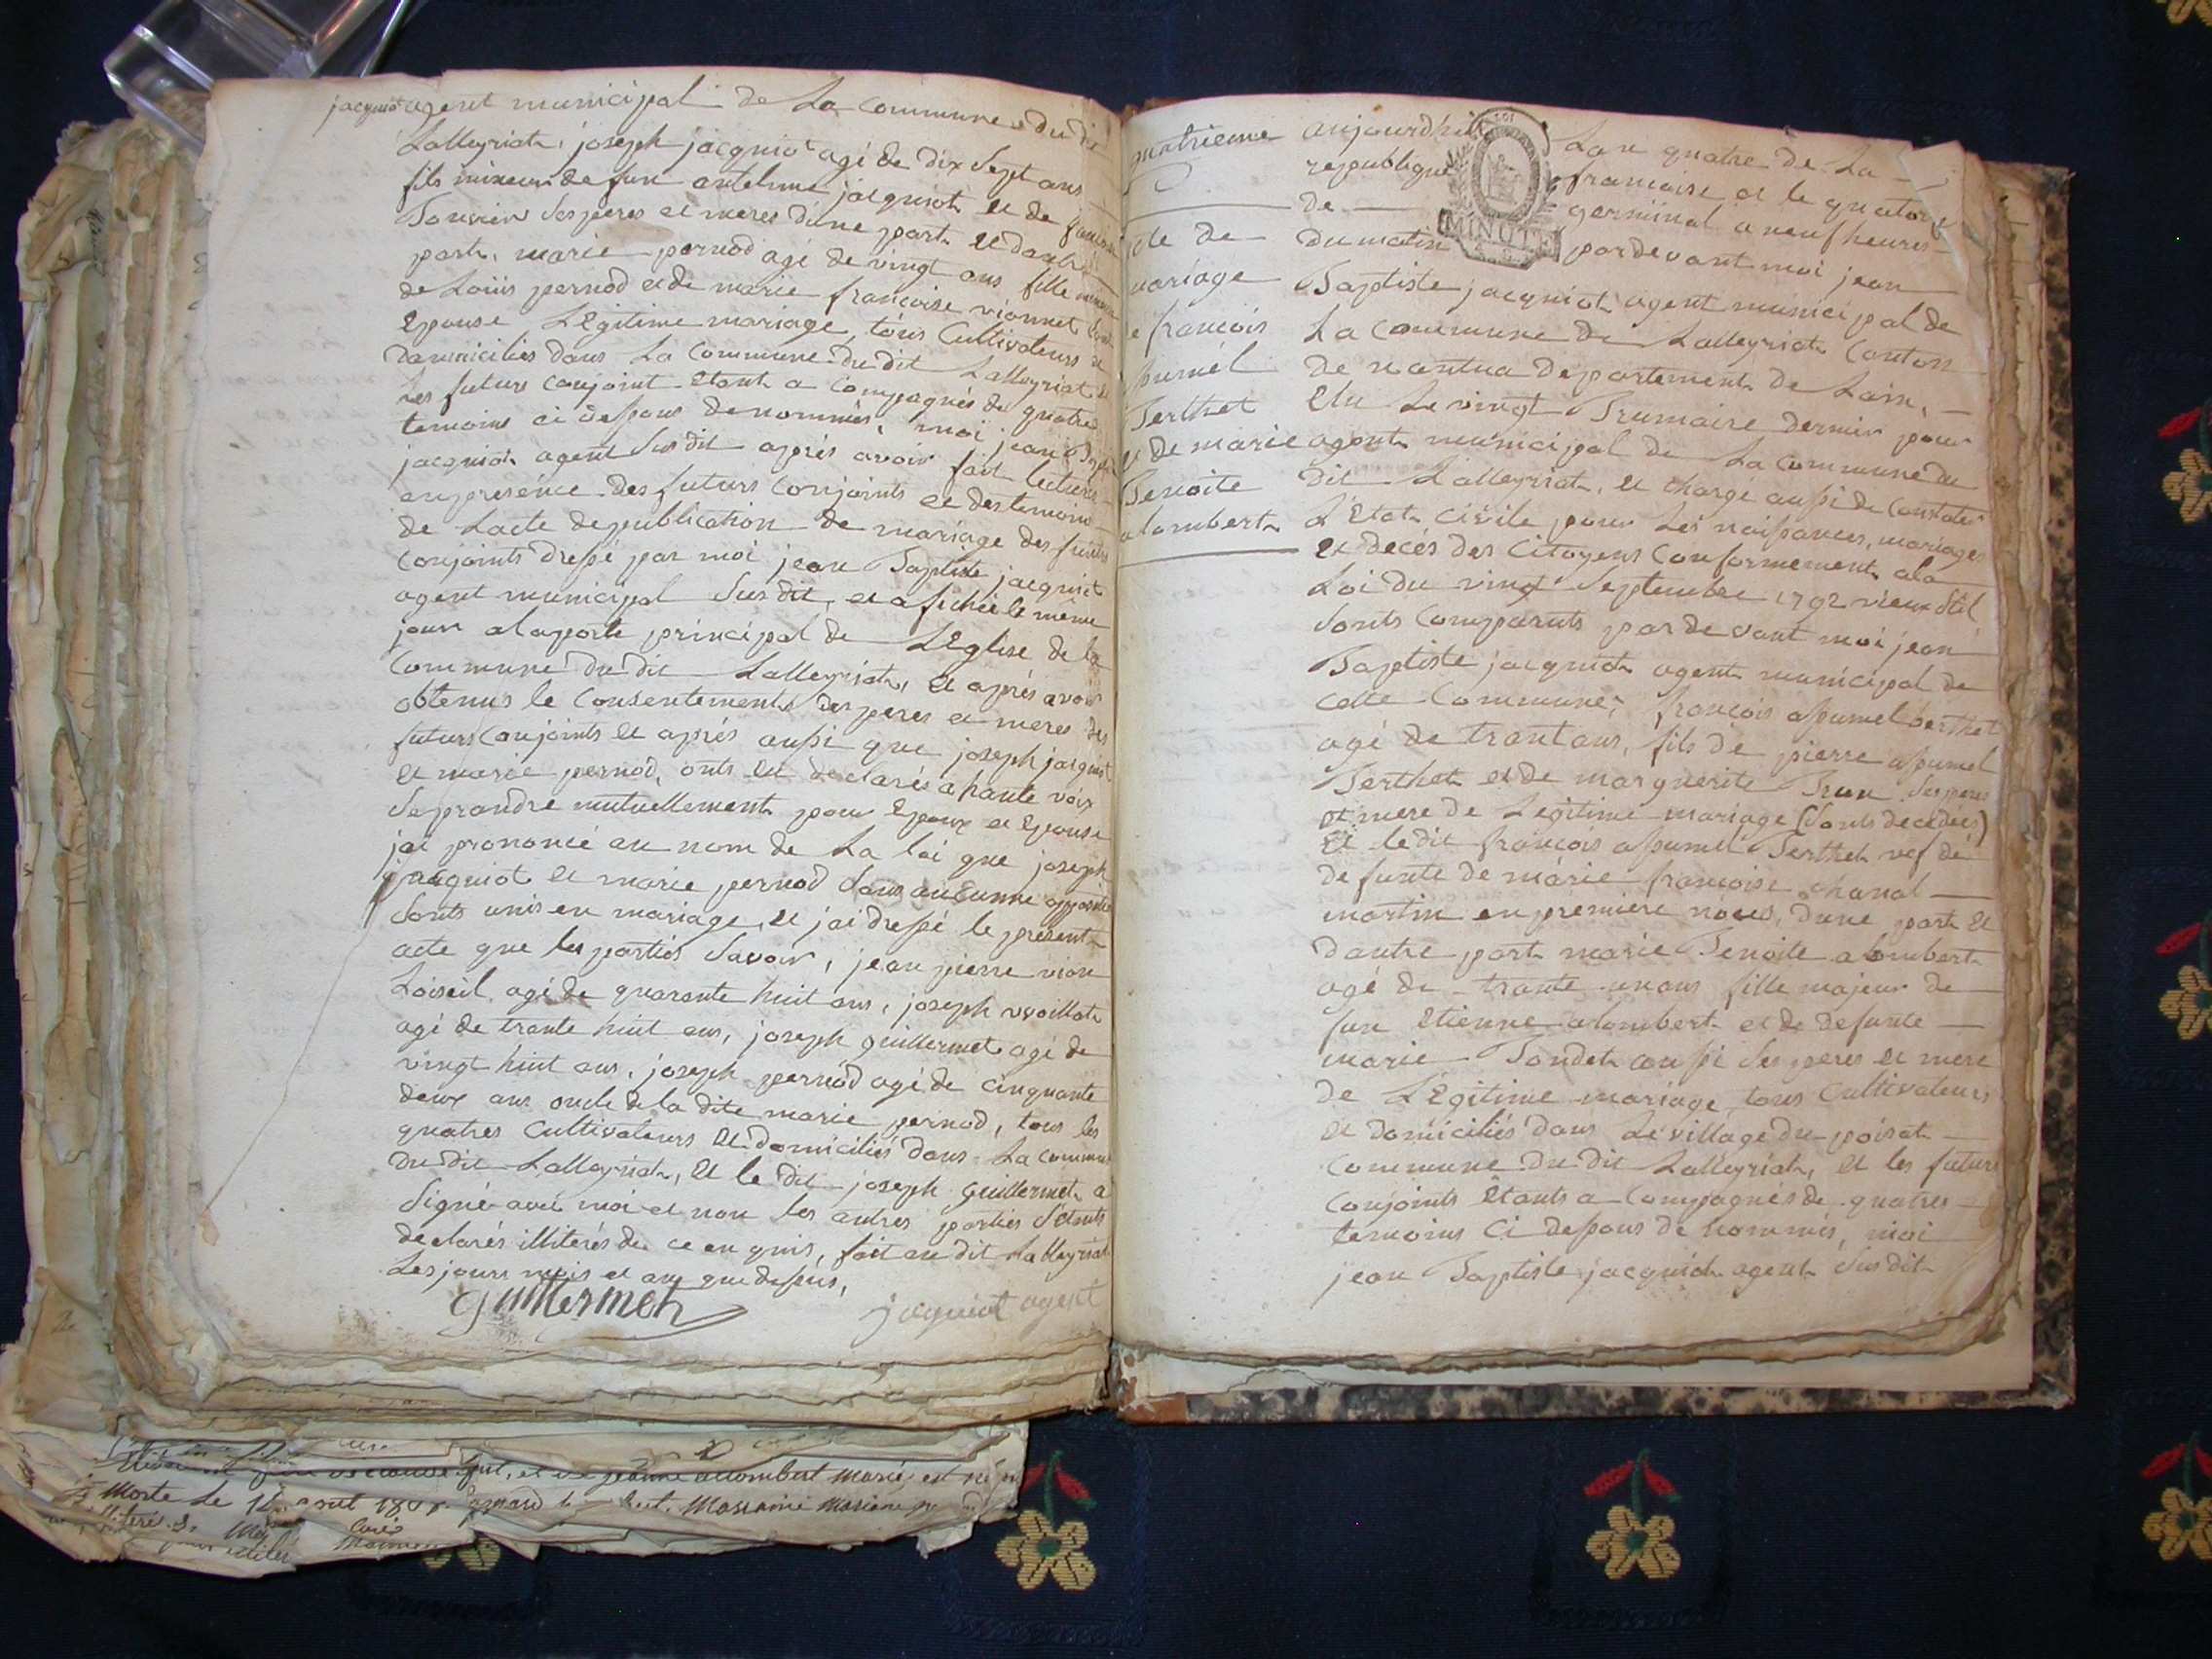 jacquiot agent municipal de La commune du dit
Lalleyriat, joseph jacquiot agé de dix Sept ans
fils mineur de feu antelme jacquiot et de
Bouvier Ses peres et meres d'une part et dautre
part, marie pernod agé de vingt ans fille
de Loüis pernod et de marie francoise vionnet
Epouse Legitime mariage, tous Cultivateurs et
domiciliés dans La Commune du dit Lalleyriat et
Les future conjoint Etant a Compagnés de quatre
temoins ci dessous denommés, moi jean Bapte
jacquiot agent Sus dit après avoir fait lecture
en presence des futurs Conjoints et des temoins
de Lacte de publication de mariage des futurs
Conjoints dressé par moi jean Baptiste jacquiot
agent municipal Sus dit, et afichée le même
jour a la porte principal de L'Eglise de la
Commune du dit Lalleyriat, et après avoir
obtenus le Consentement des peres et meres des
futurs Conjoints et après aussi que joseph jacquiot
et marie pernod, onts eu declarés a haute voix
Se prandre mutuellement pour Epoux et Epouse
jai prononcé au nom de La loi que joseph
jacquiot et marie pernod Sans aucunne opposition
Sonts unis en mariage, et jai dressé le present
acte que les parties Savoir, jean pierre vion
Loiseil agé de quarante huit ans, joseph
agé de trante huit ans, joseph guillermet agé de
vingt huit ans, joseph pernod agé de cinquante
deux ans oncle de la dite marie pernod, tous les
quatres Cultivateurs et domiciliés dans La commune
du dit Lalleyriat, et le dit joseph guillermet a
Signé avec moi et non les autres parties S'etants
declarés illiterés de ce en quis, fait au dit Lalleyriat
Les jours mois et an que dessus,
guillermet jacquiot agent
quatrieme
acte de
mariage
de francois
assumel
Berthet
et de marie
Benoite
alombert
aujourdhui Lan quatre de La
republique francaise et le quatorze
de germinal a neuf heures
du matin pardevant moi jean
MINUTE
Baptiste jacquiot agent municipal de
La commune de Lalleyriat Canton
de nantua departement de Lain,
Elu Le vingt Brumaire dernier pour
agent municipal de La commune du
dit Lalleyriat, et chargé aussi de Constater
L'Etat Civile pour Les naissances, mariages
et decés des Citoyens Conformement ala
Loi du vingt Septembre 1792 vieux Stil
Sonts Comparuts par devant moi jean
Baptiste jacquiot agent municipal de
cette Commune, francois assumel berthet
agé de trant ans, fils de pierre assumel
Berthet et de marguerite Brun Ses peres
et mere de Legitime mariage (Sonts decedeés)
Et le dit francois assumel Berthet vef de
defunte de marie francoise chanal
martin en premiere noces, dune part et
dautre part marie Benoite alombert
agé de trante un ans fille majeur de
feu Etienne alombert et de defunte
marie Bondet aussi Ses peres et mere
de Légitime mariage, tous Cultivateurs
et domiciliés dans Le village du poisat
Commune du dit Lalleyriat, et les futurs
conjoints Etants a Compagnés de quatres
temoins Ci dessous de nommés, moi
jean Baptiste jacquiot agent Sus dit